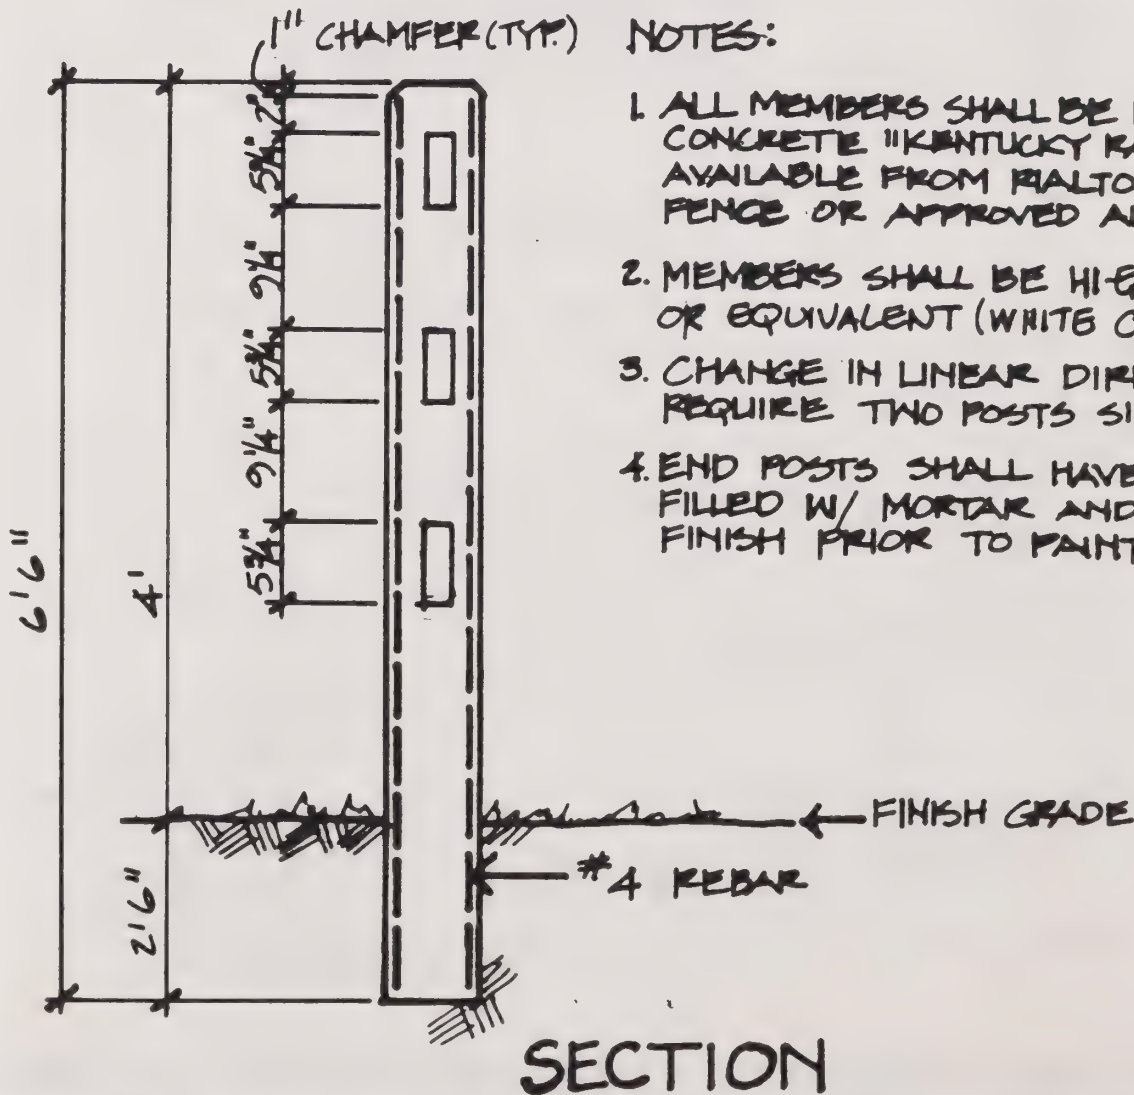 1" CHAMFER (TYP.)
NOTES:
1. ALL MEMBERS SHALL BE
CONCRETE "KENTUCKY
AVAILABLE FROM RIALTO
FENCE OR APPROVED
2. MEMBERS SHALL BE
OR EQUIVALENT (WHITE
3. CHANGE IN LINEAR
REQUIRE TWO POSTS
4. END POSTS SHALL HAVE
FILLED W/ MORTAR AND
FINISH PRIOR TO
2"
5¾"
9¼"
5¾"
9¼"
5¾"
6'6"
4'
2'6"
FINISH GRADE
#4 REBAR
SECTION